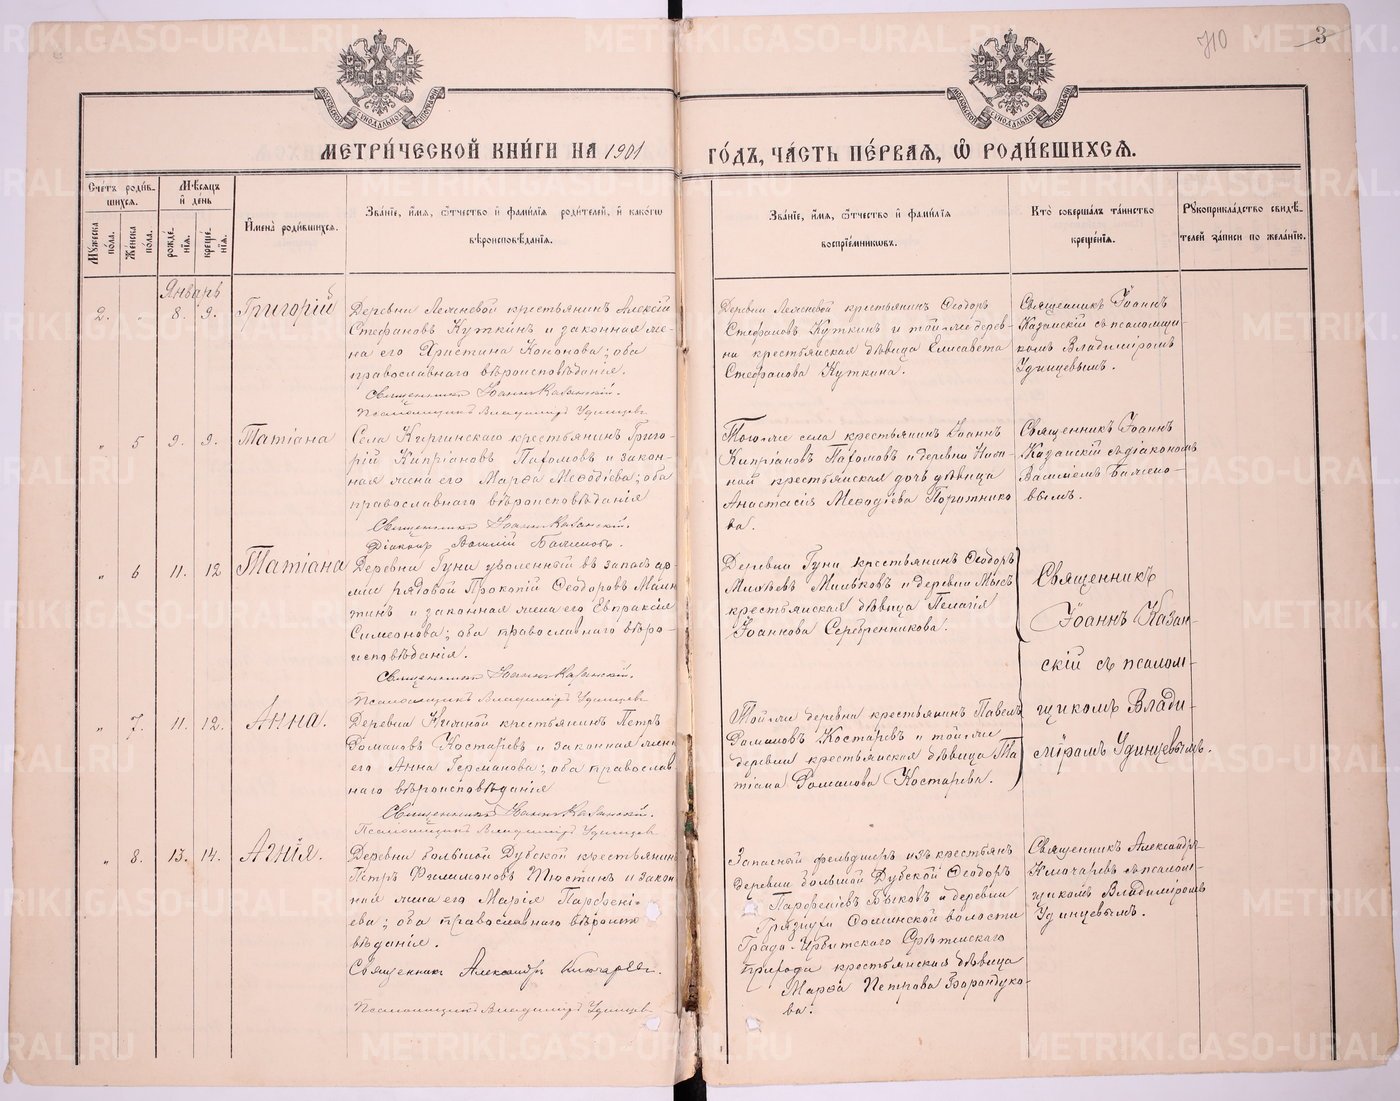 710 3
МЕТРИ́ЧЕСКОЙ КНИ́ГИ НА 1901 ГО́ДЪ, ЧА́СТЬ ПЕ́РВАЯ, Ѡ РОДИ́ВШИХСѦ.
Счётъ роди́в-
шихся.
Мѣ́сяцъ
и҆ де́нь
Му́жеска по́ла.
Же́нска по́ла.
рожде́-
нія.
креще́-
нія.
И҆мена̀ роди́вшихся.
Зва́ніе, и҆́мя, ѻ҆́тчество и҆ фами́лія роди́телей, и҆ како́гѡ
вѣроисповѣ́данія.
Зва́ніе, и҆́мя, ѻ҆́тчество и҆ фами́лія
воспріе́мниковъ.
Кто̀ соверша́лъ та́инство
креще́нія.
Рукоприкла́дство свидѣ́-
телей за́писи по жела́нію.
Январь
2. „ 8. 9. Григорій
Деревни Лежневой крестьянинъ Алексій
Стефановъ Куткинъ и законная же-
на его Христина Кононова; оба
православнаго вѣроисповѣданія.
Священникъ Іоаннъ Казанскій.
Псаломщикъ Владиміръ Удинцевъ
Деревни Лежневой крестьянинъ Ѳеодоръ
Стефановъ Куткинъ и той-же дерев-
ни крестьянская дѣвица Елисавета
Стефанова Куткина.
Священникъ Іоаннъ
Казанскій съ псаломщи-
комъ Владиміромъ
Удинцевымъ.
„ 5 9. 9. Татіана
Села Киргинскаго крестьянинъ Григо-
рій Кипріановъ Пахомовъ и закон-
ная жена его Марѳа Меѳодіева; оба
православнаго вѣроисповѣданія
Священникъ Іоаннъ Казанскій.
Діаконъ Василій Баженовъ.
Того-же села крестьянинъ Іоаннъ
Кипріановъ Пахомовъ и деревни
ной крестьянская дочь дѣвица
Анастасія Меѳодіева Поротнико
ва.
Священникъ Іоаннъ
Казанскій съ діакономъ
Василіемъ Бажено-
вымъ.
„ 6 11. 12 Татіана
Деревни Гуни уволенный въ запасъ ар-
міи рядовой Прокопій Ѳеодоровъ
тинъ и законная жена его Евпраксія
Симеонова; оба православнаго вѣро-
исповѣданія.
Священникъ Іоаннъ Казанскій.
Псаломщикъ Владиміръ Удинцевъ
Деревни Гуни крестьянинъ Ѳеодоръ
Михѣевъ Мильковъ и деревни Мысъ
крестьянская дѣвица Пелагія
Іоаннова Серебренникова.
Священникъ
Іоаннъ Казан-
скій съ псалом-
щикомъ Влади-
міромъ Удинцевымъ.
„ 7. 11. 12. Анна.
Деревни Кичной крестьянинъ Петръ
Романовъ Костаревъ и законная жена
его Анна Германова; оба православ
наго вѣроисповѣданія
Священникъ Іоаннъ Казанскій.
Псаломщикъ Владиміръ Удинцевъ
Той-же деревни крестьянинъ Павелъ
Романовъ Костаревъ и той-же
деревни крестьянская дѣвица Та
тіана Романова Костарева.
„ 8. 13. 14. Агнія.
Деревни Большой Дубской крестьянинъ
Петръ Филимоновъ Тюстинъ и закон
ная жена его Марія Парѳені-
ева; оба православнаго вѣроиспо
вѣданія.
Священникъ Александръ Ключаревъ.
Псаломщикъ Владиміръ Удинцевъ
Запасный фельдшеръ изъ крестьянъ
деревни Большой Дубской Ѳеодоръ
Парѳеніевъ Быковъ и деревни
Грязнухи Сошинской волости
Града-Ирбитскаго Срѣтенскаго
прихода крестьянская дѣвица
Марѳа Петрова Бороздуко-
ва.
Священникъ Александръ
Ключаревъ съ псалом-
щикомъ Владиміромъ
Удинцевымъ.
METRIKI.GASO-URAL.RU